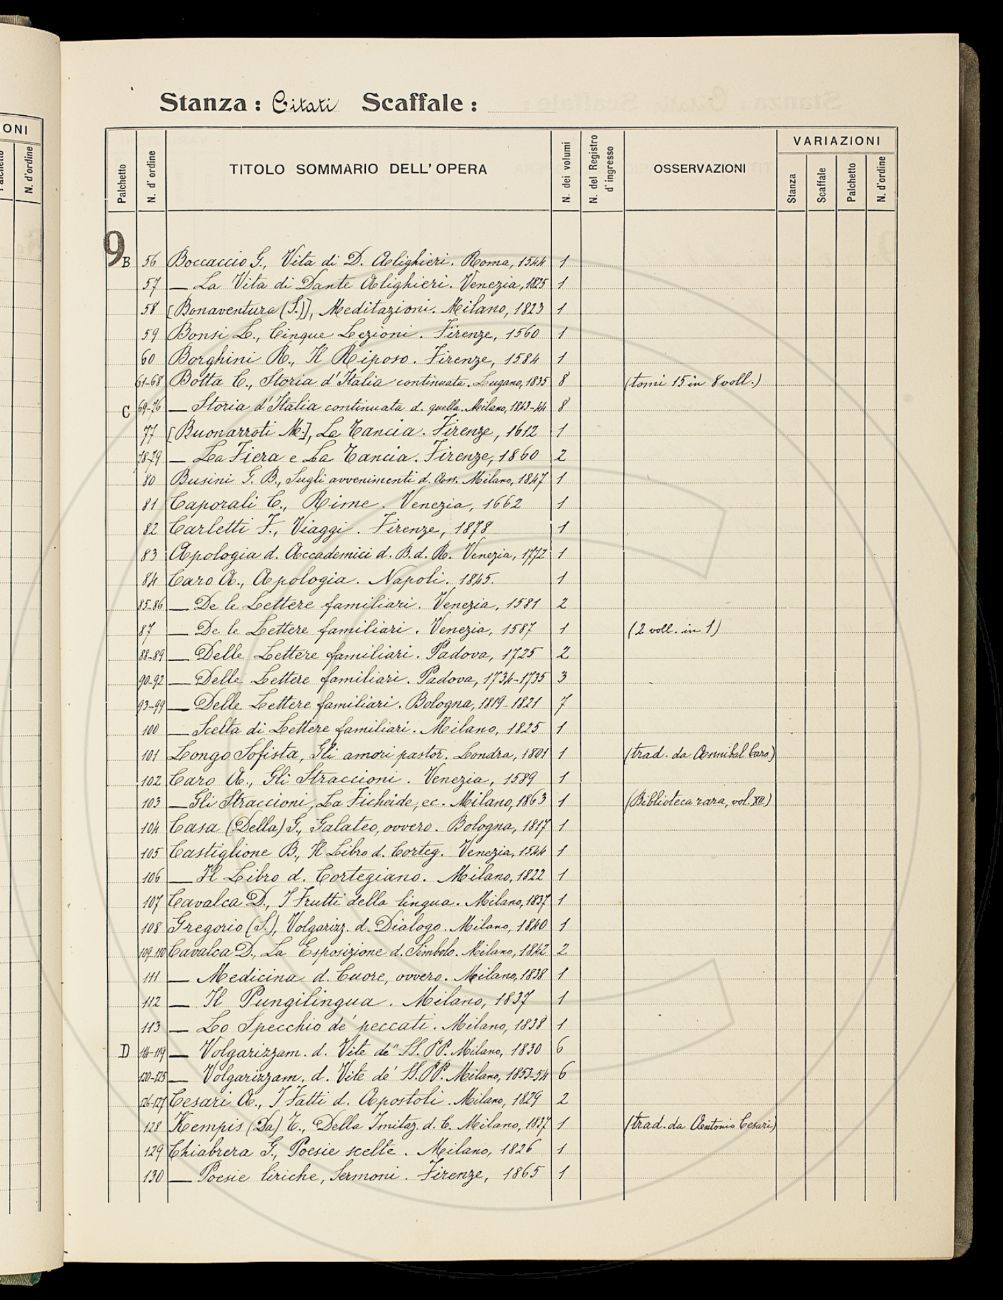 Stanza: Citati Scaffale:
Palchetto N. d'ordine TITOLO SOMMARIO DELL'OPERA N. dei volumi N. del Registro d'ingresso OSSERVAZIONI VARIAZIONI
Stanza Scaffale Palchetto N. d'ordine
ONI
Palchetto N. d'ordine
9
B 56 Boccaccio G., Vita di D. Alighieri. Roma, 1544 1
57 — La Vita di Dante Alighieri. Venezia, 1825 1
58 [Bonaventura (S.)], Meditazioni. Milano, 1823 1
59 Bonsi L., Cinque Lezioni. Firenze, 1560 1
60 Borghini R., Il Riposo. Firenze, 1584 1
61-68 Botta C., Storia d'Italia continuata. Lugano, 1835 8 (tomi 15 in 8 voll.)
C 69-76 — Storia d'Italia continuata d. quella. Milano, 1843-44 8
77 [Buonarroti M.], La Tancia. Firenze, 1612 1
78-79 — La Fiera e La Tancia. Firenze, 1860 2
80 Busini G. B., Sugli avvenimenti d. Milano, 1847 1
81 Caporali C., Rime. Venezia, 1662 1
82 Carletti F., Viaggi. Firenze, 1878 1
83 Apologia d. Accademici d. B. d. R. Venezia, 1772 1
84 Caro A., Apologia. Napoli. 1845. 1
85-86 — De le Lettere familiari. Venezia, 1581 2
87 — De le Lettere familiari. Venezia, 1587 1 (2 voll. in 1)
88-89 — Delle Lettere familiari. Padova, 1725 2
90-92 — Delle Lettere familiari. Padova, 1734-1735 3
93-99 — Delle Lettere familiari. Bologna, 1819-1821 7
100 — Scelta di Lettere familiari. Milano, 1825 1
101 Longo Sofista, Gli amori pastor. Londra, 1801 1 (trad. da Annibal Caro)
102 Caro A., Gli Straccioni. Venezia, 1589 1
103 — Gli Straccioni, La Ficheide, ec. Milano, 1863 1 (Biblioteca rara, vol. XII)
104 Casa (Della) G., Galateo, ovvero. Bologna, 1817 1
105 Castiglione B., Il Libro d. Corteg. Venezia, 1544 1
106 — Il Libro d. Cortegiano. Milano, 1822 1
107 Cavalca D., I Frutti della lingua. Milano, 1837 1
108 Gregorio (S.), Volgarizz. d. Dialogo. Milano, 1840 1
109-110 Cavalca D., La Esposizione d. Simbolo. Milano, 1842 2
111 — Medicina d. Cuore, ovvero. Milano, 1838 1
112 — Il Pungilingua. Milano, 1837 1
113 — Lo Specchio de' peccati. Milano, 1838 1
D 114-119 — Volgarizzam. d. Vite de' SS. PP. Milano, 1830 6
120-125 — Volgarizzam. d. Vite de' SS. PP. Milano, 1853-54 6
126-127 Cesari A., I Fatti d. Apostoli. Milano, 1829 2
128 Kempis (Da) T., Della Imitaz. d. C. Milano, 1827 1 (trad. da Antonio Cesari)
129 Chiabrera G., Poesie scelte. Milano, 1826 1
130 — Poesie liriche, Sermoni. Firenze, 1865 1